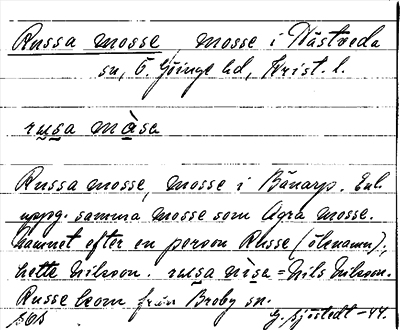 Russa mosse, mosse i Hästveda
sn, Ö. Göinge hd, Krist. l.
rusa måsa
Russa mosse, mosse i Bänarp. Enl.
uppg. samma mosse som Agra mosse.
Namnet efter en person Russe (öknamn),
hette Nilsson. rusa nisa = Nils Nilsson.
Russe kom från Broby sn.
G. Sjöstedt -44.